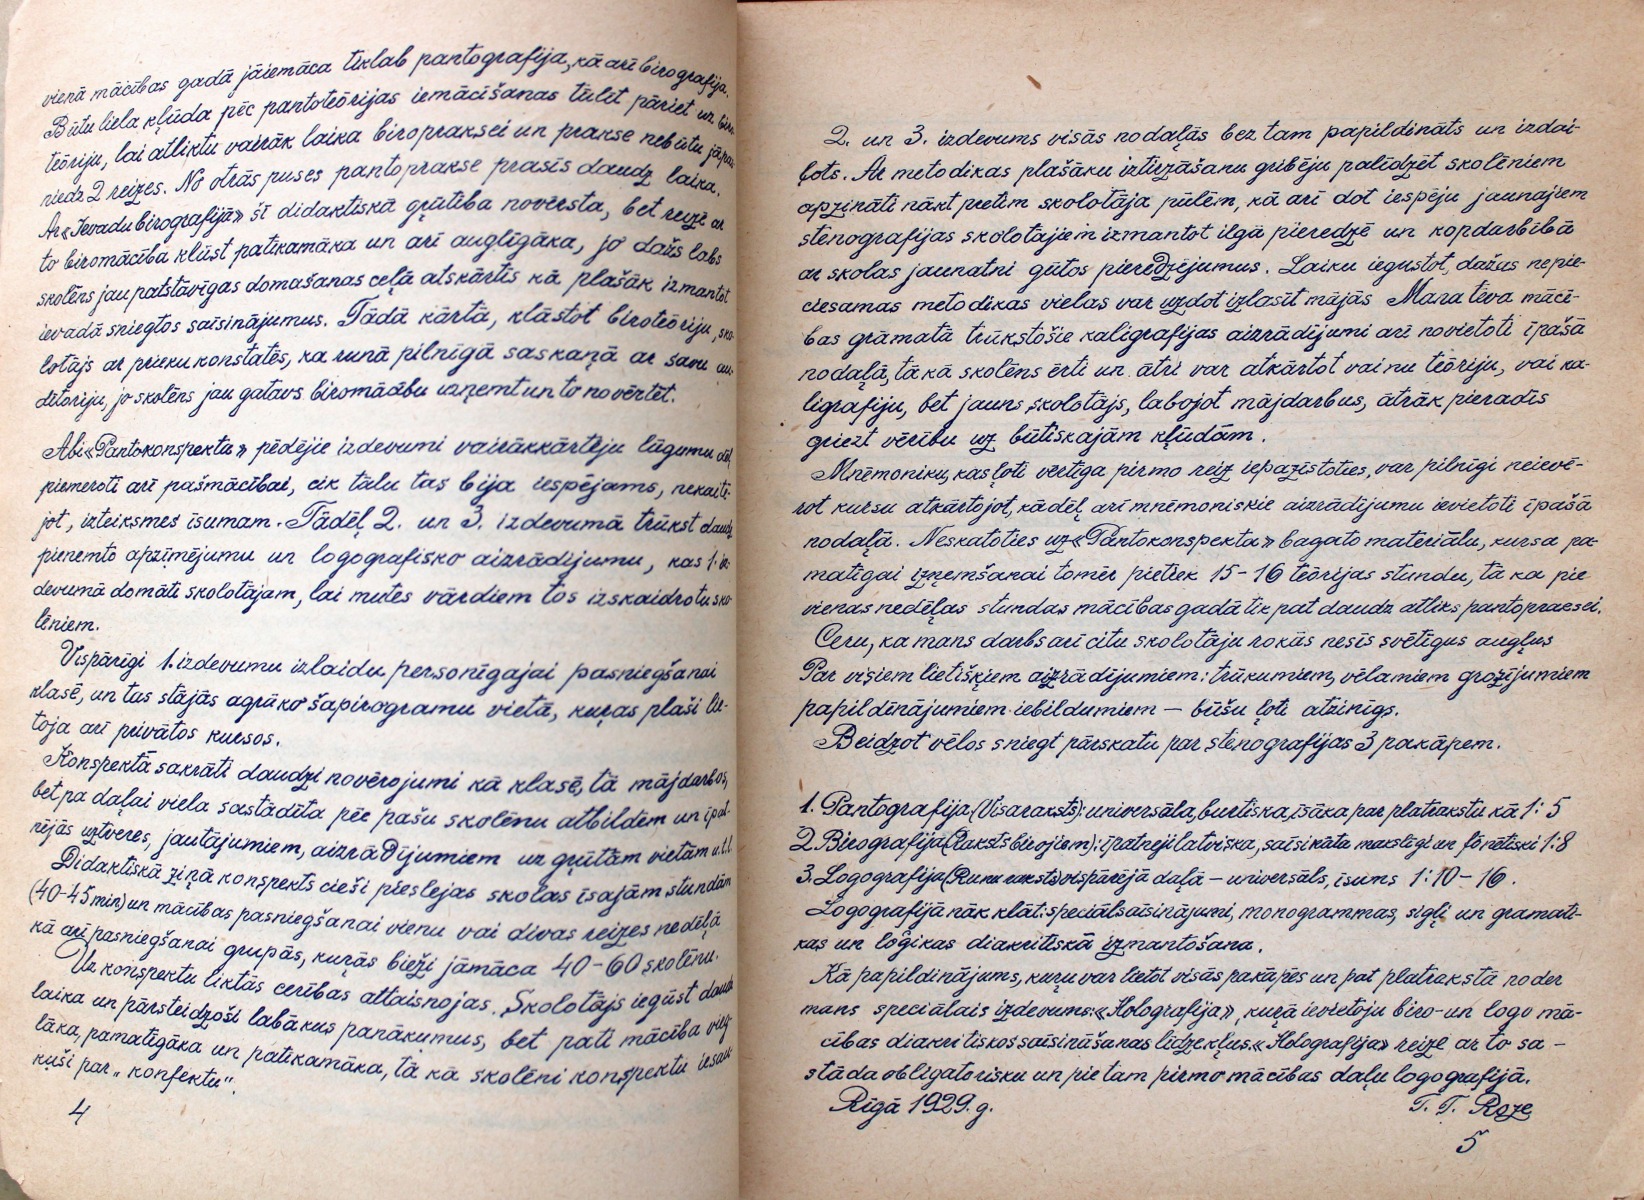 vienā mācības gadā jāiemāca tiklab pantografija, kā arī birografija.
Būtu liela kļūda pēc pantoteōrijas iemācīšanas tūlīt pāriet uz biro-
teōriju, lai atliktu vairāk laika biropraksei un prakse nebūtu jāpas-
niedz 2 reizes. No otrās puses pantoprakse prasīs daudz laika.
Ar «Ievadu birografijā» šī didaktiskā grūtība novērsta, bet reizē ar
to biromācība kļūst patīkamāka un arī auglīgāka, jo dažs labs
skolēns jau patstāvīgas domašanas ceļā atskārtīs kā plašāk izmantot
ievadā sniegtos saīsinājumus. Tādā kārtā, klāstot biroteōriju, sko-
lotājs ar prieku konstatēs, ka runā pilnīgā saskaņā ar savu au-
ditoriju, jo skolēns jau gatavs biromācību uzņemt un to novērtēt.
Abi «Pantokonspekta» pēdējie izdevumi vairākkārtēju lūgumu dēļ
piemeroti arī pašmācībai, cik tālu tas bija iespējams, nekaitē-
jot, izteiksmes īsumam. Tādēļ 2. un 3. izdevumā trūkst daudz
pieņemto apzīmējumu un logografisko aizrādījumu, kas 1. iz-
devumā domāti skolotājam, lai mutes vārdiem tos izskaidrotu sko-
lēniem.
Vispārīgi 1. izdevumu izlaidu personīgajai pasniegšanai
klasē, un tas stājās agrāko šapirogramu vietā, kuŗas plaši lie-
toja arī privātos kursos.
Konspektā sakrāti daudzi novērojumi kā klasē, tā mājdarbos,
bet pa daļai viela sastādīta pēc pašu skolēnu atbildēm un īpat-
nējās uztveres, jautājumiem, aizrādījumiem uz grūtām vietām u.t.t.
Didaktiskā ziņā konspekts cieši pieslejas skolas īsajām stundām
(40-45 min) un mācības pasniegšanai vienu vai divas reizes nedēļā
kā arī pasniegšanai grupās, kuŗās bieži jāmāca 40-60 skolēnu.
Uz konspektu liktās cerības attaisnojas. Skolotājs iegūst daudz
laika un pārsteidzoši labākus panākumus, bet pati mācība vieg-
lāka, pamatīgāka un patīkamāka, tā kā skolēni konspektu iesau-
kuši par „konfektu".
4
2. un 3. izdevums visās nodaļās bez tam papildināts un izdai-
ļots. Ar metodikas plašāku iztirzāšanu gribēju palīdzēt skolēniem
apzināti nākt pretim skolotāja pūlēm, kā arī dot iespēju jaunajiem
stenografijas skolotājiem izmantot ilgā pieredzē un kopdarbībā
ar skolas jaunatni gūtos pieredzējumus. Laiku iegustot, dažas nepie-
ciesamas metodikas vielas var uzdot izlasīt mājās Mana tēva mācī-
bas grāmatā trūkstošie kaligrafijas aizrādījumi arī novietoti īpašā
nodaļā, tā kā skolēns ērti un ātri var atkārtot vai nu teōriju, vai ka-
ligrafiju, bet jauns skolotājs, labojot mājdarbus, ātrāk pieradīs
griezt vērību uz būtiskajām kļūdām.
Mnēmoniku, kas ļoti vērtīga pirmo reiz iepazīstoties, var pilnīgi neievē-
rot kursu atkārtojot, kādēļ arī mnēmoniskie aizrādījumi ievietoti īpašā
nodaļā. Neskatoties uz «Pantokonspekta» bagāto materiālu, kursa pa-
matīgai izņemšanai tomēr pietiek 15-16 teōrijas stundu, tā ka pie
vienas nedēļas stundas mācības gadā tik pat daudz atliks pantopraksei.
Ceru, ka mans darbs arī citu skolotāju rokās nesīs svētīgus augļus
Par visiem lietišķiem aizrādījumiem: trūkumiem, vēlamiem grozījumiem
papildinājumiem iebildumiem — būšu ļoti atzinīgs.
Beidzot vēlos sniegt pārskatu par stenografijas 3 pakāpem.
1. Pantografija (Visaraksts): universāla, burtiska, īsāka par platrakstu kā 1:5
2. Birografija (Raksts birojiem): īpatneji latviska, saīsināta maksligi un fōnētiski 1:8
3. Logografija (Runu raksts) vispārējā daļā — universāls, īsums 1:10-16.
Logografijā nāk klāt: speciālsaīsinājumi, monogrammas, sigļi un gramati-
kas un loģikas diakritiskā izmantošana.
Kā papildinājums, kuŗu var lietot visās pakāpēs un pat platrakstā noder
mans speciālais izdevums: «Holografija», kuŗā ievietoju biro- un logo mā-
cības diakritiskos saīsināšanas līdzekļus. «Holografija» reizē ar to sa-
stāda obligatorisku un pie tam pirmo mācības daļu logografijā.
Rīgā 1929. g.
T. T. Roze
5